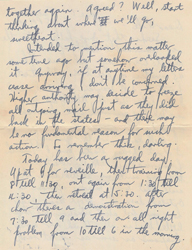 together again. Agreed? Well, start
thinking about where we'll go,
sweetheart.
Intended to mention this matter
some time ago but somehow overlooked
it. Anyway, if at anytime my letters
cease coming, don't be concerned.
Higher authority may decide to freeze
all outgoing mail just as they did
back in the states - and there may
be no fundamental reason for such
action. So remember this, darling.
Today has been a rugged day.
Up at 5 for reveille, then training from
8 till 11:30, out again from 1:30 till
4:30. Then retreat at 5:30 after
chow there's a demonstration from
7:30 till 9 and then an all night
problem from 10 till 6 in the morning.